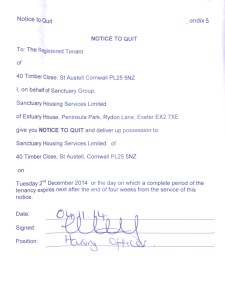 Notice to Quit
ondix 5
NOTICE TO QUIT
To: The Registered Tenant
of
40 Timber Close, St Austell Cornwall PL25 5NZ
I, on behalf of Sanctuary Group,
Sanctuary Housing Services Limited
of Estuary House, Peninsula Park, Rydon Lane, Exeter EX2 7XE
give you NOTICE TO QUIT and deliver up possession to:
Sanctuary Housing Services Limited of
40 Timber Close, St Austell, Cornwall PL25 5NZ
on
Tuesday 2nd December 2014 or the day on which a complete period of the
tenancy expires next after the end of four weeks from the service of this
notice.
Date:
Signed:
Position: Housing Officer